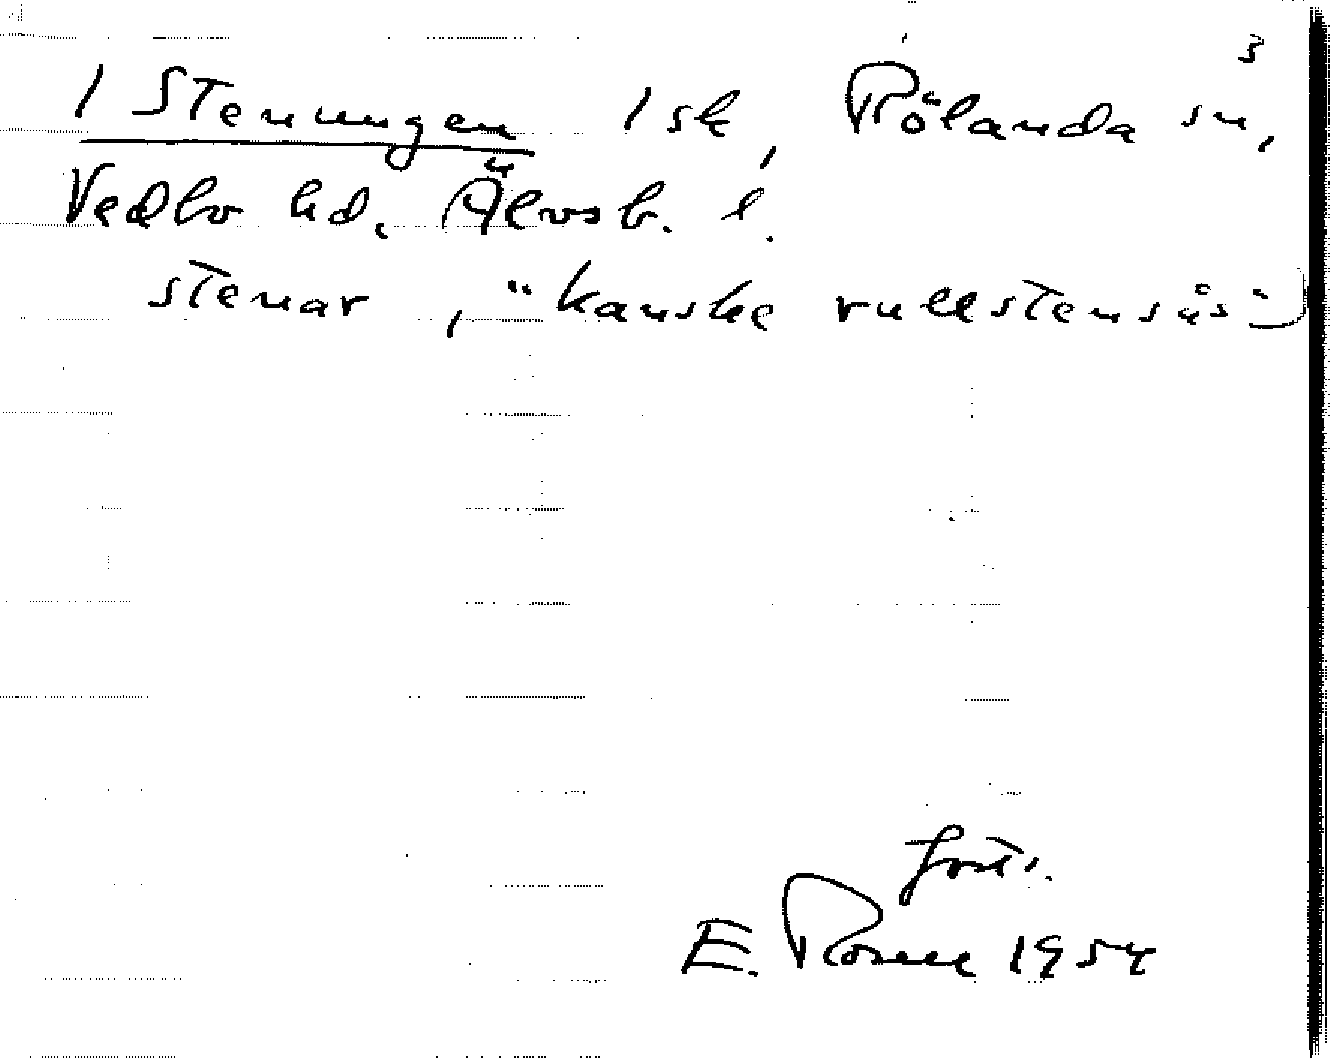 3
/ Stenungen / sk, Rölanda sn,
Vedbo hd. Älvsb. l.
stenar, "kanske rullstensås"
forts.
E. Rosell 1954